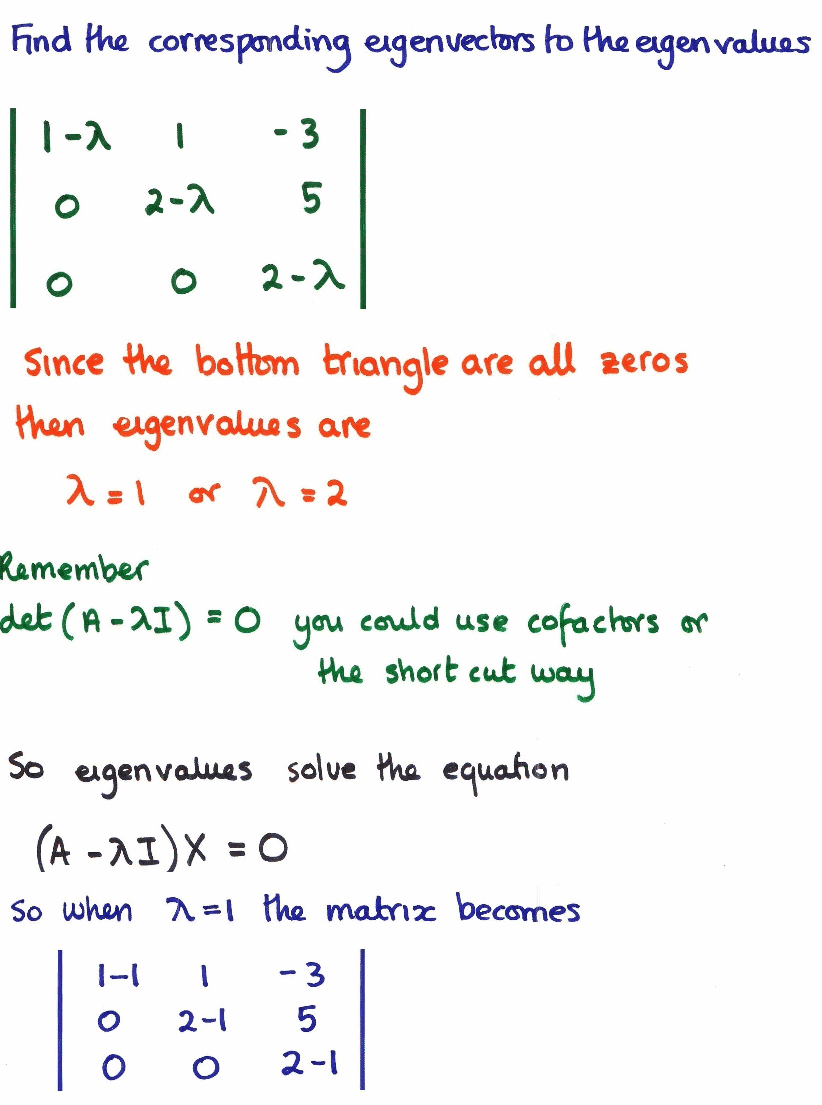 Find the corresponding eigenvectors to the eigenvalues
1-λ 1 -3
0 2-λ 5
0 0 2-λ
Since the bottom triangle are all zeros
then eigenvalues are
λ = 1 or λ = 2
Remember
det (A - λI) = 0 you could use cofactors or
the short cut way
So eigenvalues solve the equation
(A - λI)X = 0
So when λ = 1 the matrix becomes
1-1 1 -3
0 2-1 5
0 0 2-1